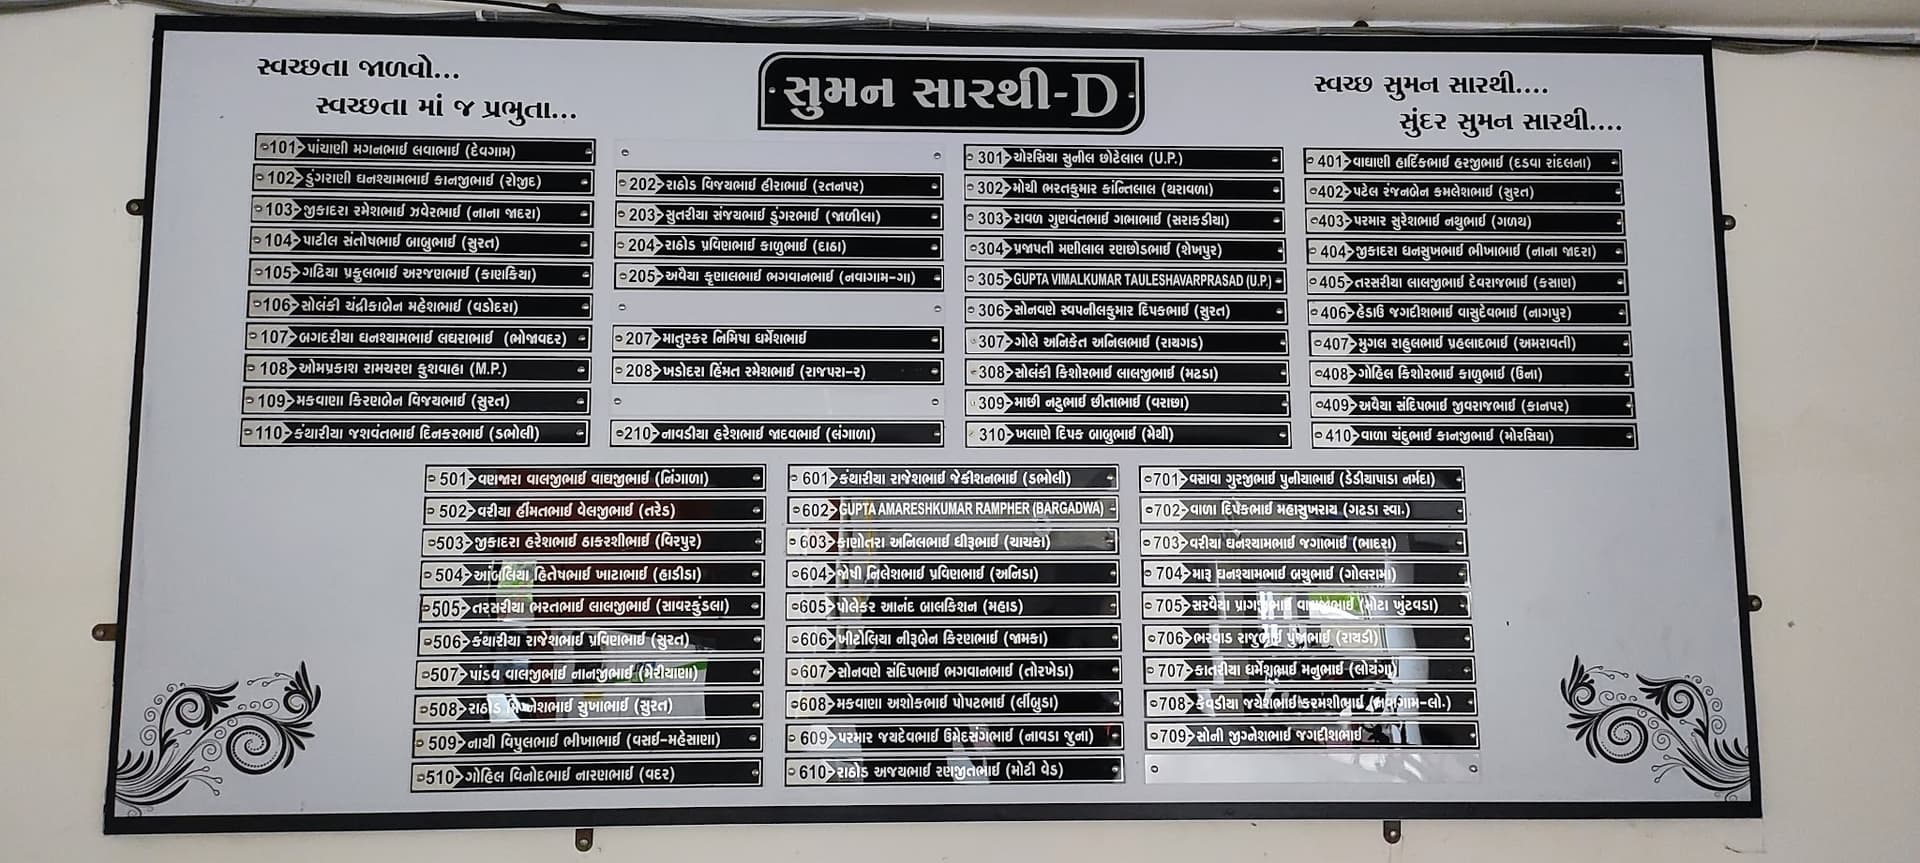 સ્વચ્છતા જાળવો...
સ્વચ્છતા માં જ પ્રભુતા...
સુમન સારથી-D
સ્વચ્છ સુમન સારથી....
સુંદર સુમન સારથી....
101 પાંચાણી મગનભાઈ લવાભાઈ (દેવગામ)
102 ડુંગરાણી ઘનશ્યામભાઈ કાનજીભાઈ (રોજીદ)
103 જીકાદરા રમેશભાઈ ઝવેરભાઈ (નાના જાદરા)
104 પાટીલ સંતોષભાઈ બાબુભાઈ (સુરત)
105 ગઢિયા પ્રફુલભાઈ અરજણભાઈ (કાણકિયા)
106 સોલંકી ચંદ્રીકાબેન મહેશભાઈ (વડોદરા)
107 બગદરીયા ઘનશ્યામભાઈ લઘરાભાઈ (ભોજાવદર)
108 ઓમપ્રકાશ રામચરણ કુશવાહા (M.P.)
109 મકવાણા કિરણબેન વિજયભાઈ (સુરત)
110 કંથારીયા જશવંતભાઈ દિનકરભાઈ (ડભોલી)
202 રાઠોડ વિજયભાઈ હીરાભાઈ (રતનપર)
203 સુતરીયા સંજયભાઈ ડુંગરભાઈ (જાળીલા)
204 રાઠોડ પ્રવિણભાઈ કાળુભાઈ (દાઠા)
205 અવૈયા કૃણાલભાઈ ભગવાનભાઈ (નવાગામ-ગા)
207 માતુરકર નિમિષા ધર્મેશભાઈ
208 ખડોદરા હિંમત રમેશભાઈ (રાજપરા-ર)
210 નાવડીયા હરેશભાઈ જાદવભાઈ (લંગાળા)
301 ચોરસિયા સુનીલ છોટેલાલ (U.P.)
302 મોચી ભરતકુમાર કાંન્તિલાલ (થરાવળા)
303 રાવળ ગુણવંતભાઈ ગભાભાઈ (સરાકડીયા)
304 પ્રજાપતી મણીલાલ રણછોડભાઈ (શેખપુર)
305 GUPTA VIMALKUMAR TAULESHAVARPRASAD (U.P.)
306 સોનવણે સ્વપનીલકુમાર દિપકભાઈ (સુરત)
307 ગોલે અનિકેત અનિલભાઈ (રાયગડ)
308 સોલંકી કિશોરભાઈ લાલજીભાઈ (મઢડા)
309 માછી નટુભાઈ છીતાભાઈ (વરાછા)
310 ખલાણે દિપક બાબુભાઈ (મેથી)
401 વાઘાણી હાર્દિકભાઈ હરજીભાઈ (દડવા રાંદલના)
402 પટેલ રંજનબેન કમલેશભાઈ (સુરત)
403 પરમાર સુરેશભાઈ નથુભાઈ (ગળથ)
404 જીકાદરા ઘનસુખભાઈ ભીખાભાઈ (નાના જાદરા)
405 તરસરીયા લાલજીભાઈ દેવરાજભાઈ (કસાણ)
406 હેડાઉ જગદીશભાઈ વાસુદેવભાઈ (નાગપુર)
407 મુગલ રાહુલભાઈ પ્રહલાદભાઈ (અમરાવતી)
408 ગોહિલ કિશોરભાઈ કાળુભાઈ (ઉના)
409 અવૈયા સંદિપભાઈ જીવરાજભાઈ (કાનપર)
410 વાળા ચંદુભાઈ કાનજીભાઈ (મોરસિયા)
501 વણજારા વાલજીભાઈ વાઘજીભાઈ (નિંગાળા)
502 વરીયા હીંમતભાઈ વેલજીભાઈ (તરેડ)
503 જીકાદરા હરેશભાઈ ઠાકરશીભાઈ (વિરપુર)
504 આંબલિયા હિતેષભાઈ ખાટાભાઈ (હાડીડા)
505 તરસરીયા ભરતભાઈ લાલજીભાઈ (સાવરકુંડલા)
506 કંથારીયા રાજેશભાઈ પ્રવિણભાઈ (સુરત)
507 પાંડવ વાલજીભાઈ નાનજીભાઈ (મેરીયાણા)
508 રાઠોડ સુખાભાઈ (સુરત)
509 નાથી વિપુલભાઈ ભીખાભાઈ (વસઈ-મહેસાણા)
510 ગોહિલ વિનોદભાઈ નારણભાઈ (વદર)
601 કંથારીયા રાજેશભાઈ જેકીશનભાઈ (ડભોલી)
602 GUPTA AMARESHKUMAR RAMPHER (BARGADWA)
603 કાણોતરા અનિલભાઈ ધીરૂભાઈ (ચાચકા)
604 જોષી નિલેશભાઈ પ્રવિણભાઈ (અનિડા)
605 પોલેકર આનંદ બાલકિશન (મહાડ)
606 ખીટોલિયા નીરૂબેન કિરણભાઈ (જામકા)
607 સોનવણે સંદિપભાઈ ભગવાનભાઈ (તોરખેડા)
608 મકવાણા અશોકભાઈ પોપટભાઈ (લીંબુડા)
609 પરમાર જયદેવભાઈ ઉમેદસંગભાઈ (નાવડા જુના)
610 રાઠોડ અજયભાઈ રણજીતભાઈ (મોટી વેડ)
701 વસાવા ગુરજીભાઈ પુનીયાભાઈ (ડેડીયાપાડા નર્મદા)
702 વાળા દિપકભાઈ મહાસુખરાય (ગઢડા સ્વા.)
703 વરીયા ઘનશ્યામભાઈ જગાભાઈ (ભાદરા)
704 મારૂ ઘનશ્યામભાઈ બચુભાઈ (ગોલરામા)
705 સરવૈયા (મોટા ખુંટવડા)
706 ભરવાડ રાજુભાઈ પુંજાભાઈ (રાયડી)
707 કાતરીયા ધર્મેશભાઈ મનુભાઈ (લોયંગા)
708 કેવડીયા જયેશભાઈ કરમશીભાઈ (નવાગામ-લો.)
709 સોની જીગ્નેશભાઈ જગદીશભાઈ